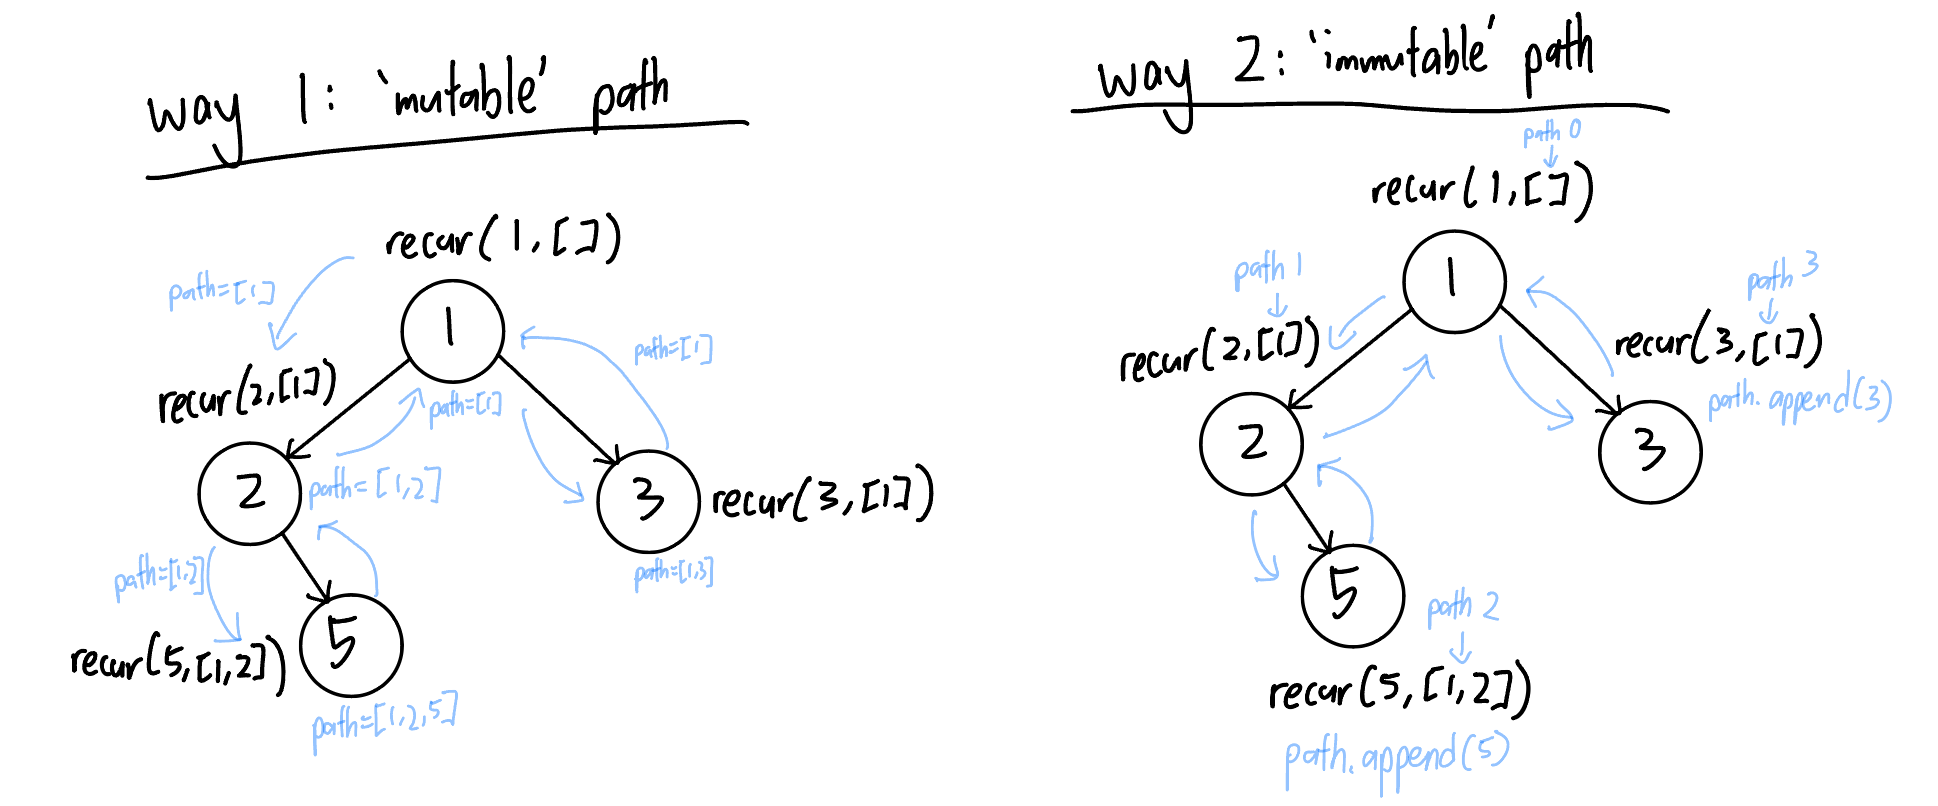 way 1: 'mutable' path
recur(1,[])
path=[1]
1
path=[1]
recur(2,[1])
path=[1]
2
path=[1,2]
3
recur(3,[1])
path=[1,2]
path=[1,3]
recur(5,[1,2])
5
path=[1,2,5]
way 2: 'immutable' path
path 0
recur(1,[])
path 1
1
path 3
recur(2,[1])
recur(3,[1])
path.append(3)
2
3
5
path 2
recur(5,[1,2])
path.append(5)